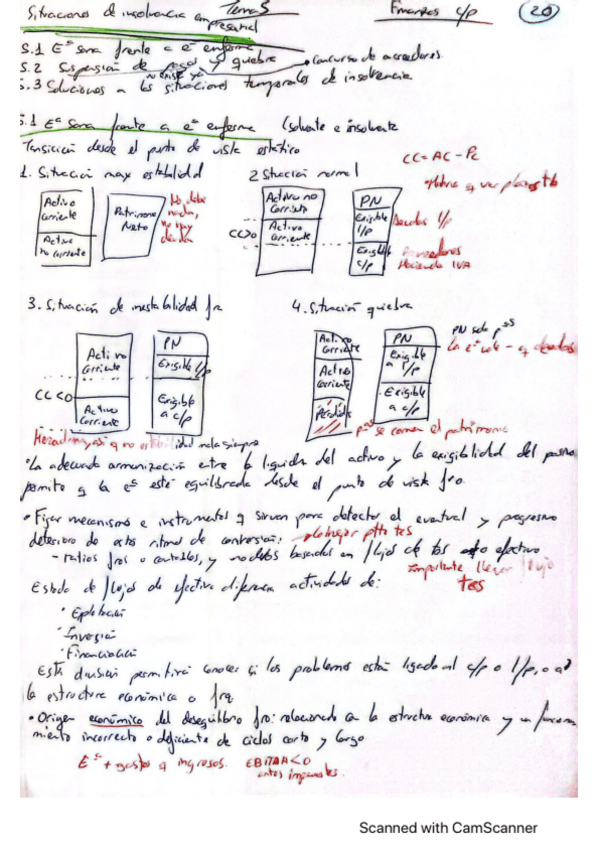 Situaciones de insolvencia empresarial Tema 5 Finanzas c/p 20
5.1 Eª sana frente a eª enferma
5.2 Suspensión de pagos y quiebra → concurso de acreedores
no existe ya
5.3 Soluciones a las situaciones temporales de insolvencia
5.1 Eª sana frente a eª enferma (solvente e insolvente
Transición desde el punto de vista estático
CC = AC - PC
1. Situación max estabilidad
2 Situación normal
Activo corriente
Activo no corriente
Patrimonio Neto
No debe nada, no hay deuda
CC>0
Activo no corriente
Activo Corriente
PN
Exigible l/p
Exigible c/p
Deudas l/p
Proveedores
Hacienda IVA
3. Situación de inestabilidad fra
4. Situación quiebra
CC<0
Acti no corriente
Activo Corriente
PN
Exigible l/p
Exigible a c/p
Acti no Corriente
Activo Corriente
Pérdidas
PN
Exigible a l/p
Exigible a c/p
PN solo pªˢ
la eª vale - q deudas
pªˢ se comen el patrimonio
Mercadona, así q no estabilidad mala siempre
• La adecuada armonización entre la liquidez del activo y la exigibilidad del pasivo
permite q la eª esté equilibrada desde el punto de vista fro.
• Fijar mecanismos e instrumentos q sirvan para detectar el eventual y progresivo
deterioro de este ritmo de conversión,
- ratios fros o contables, y modelos basados en flujos de tes efectivo
importante llevar flujo tes
Estado de flujos de efectivo diferencia actividades de:
• Explotación
• Inversión
• Financiación
Esta división permitirá conocer si los problemas están ligado al c/p o l/p, o a
la estructura económica o fra
• Origen económico del desequilibrio fro: relacionado con la estructura económica y un funciona
miento incorrecto o deficiente de ciclos corto y largo
Eª + gastos q ingresos. EBITDA<0
antes impuestos.
Scanned with CamScanner